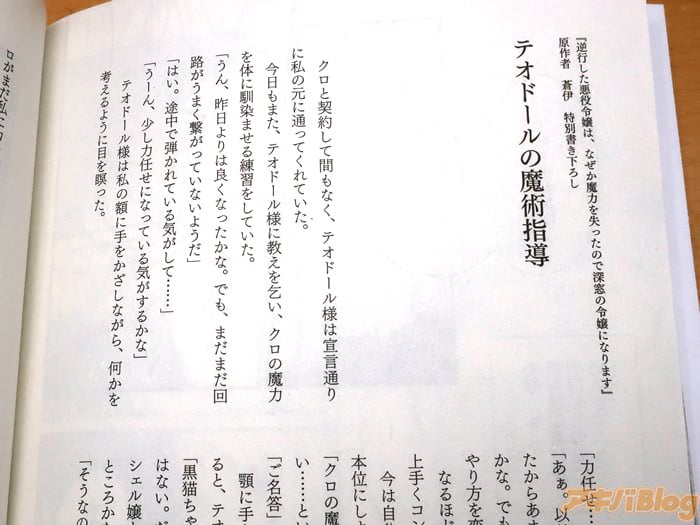 『逆行した悪役令嬢は、なぜか魔力を失ったので深窓の令嬢になります』
原作者 蒼伊 特別書き下ろし
テオドールの魔術指導
クロと契約して間もなく、テオドール様は宣言通り
に私の元に通ってくれていた。
今日もまた、テオドール様に教えを乞い、クロの魔力
を体に馴染ませる練習をしていた。
「うん、昨日よりは良くなったかな。でも、まだまだ回
路がうまく繋がっていないようだ」
「はい。途中で弾かれている気がして……」
「うーん、少し力任せになっている気がするかな」
テオドール様は私の額に手をかざしながら、何かを
考えるように目を瞑った。
「力任せ…
「あぁ。以
たからあま
かな。でも
やり方を変
なるほど
上手くコン
今は自
本位にしよ
「クロの魔
い……とい
「ご名答」
顎に手
ると、テオ
「黒猫ちゃ
はない。ボ
シェル嬢
ところかな
「そうなの
ロがまだ私に
アキバBlog